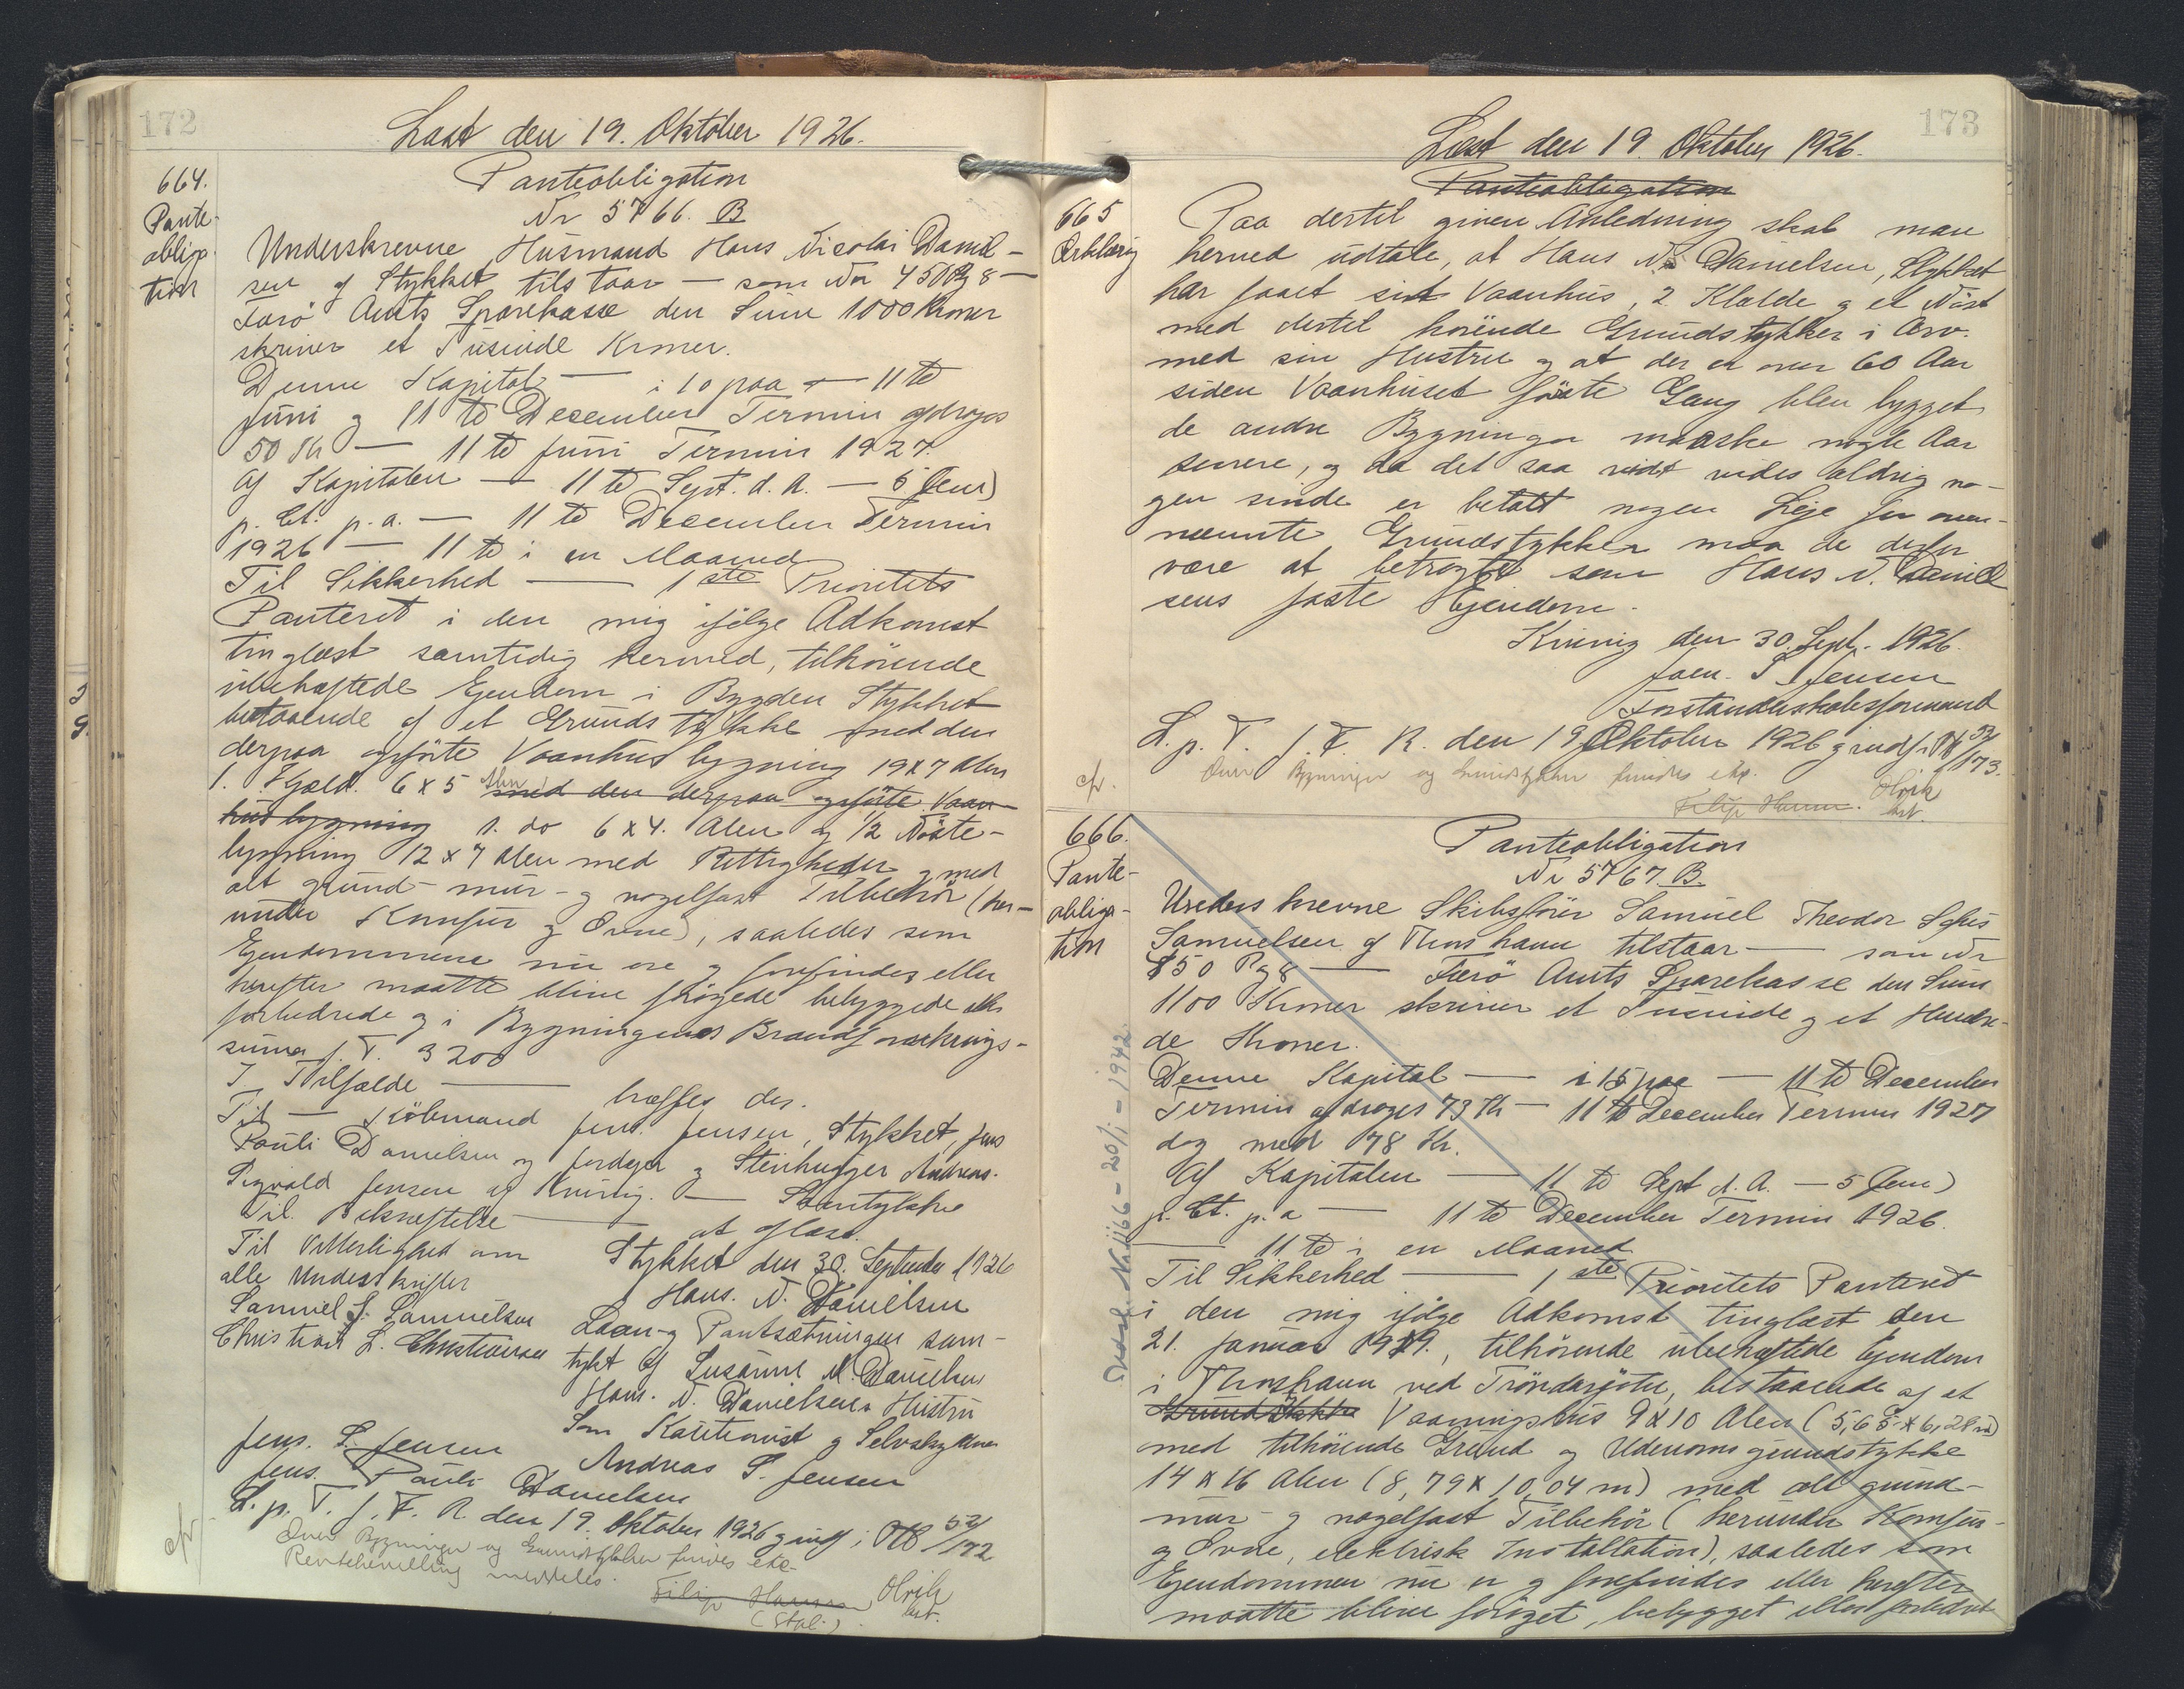 172
Læst den 19. Oktober 1926.
664.
Pante-
obliga-
tion
Panteobligation
Nr 5766. B
Underskrevne Husmand Hans Nicolai Daniel-
sen af Stykket tilstaar — som Nr 450 Pg 8 —
Færö Amts Sparekasse den Sum 1000 Kroner
skriver et Tusinde Kroner.
Denne Kapital — i 10 paa — 11te
Juni og 11te December Termin afdrages
50 Kr — 11te Juni Termin 1927.
Af Kapitalen — 11te Sept. d. A. — 5 (fem)
p. Ct. p. a. — 11te December Termin
1926 — 11te i en Maaned
Til Sikkerhed — 1ste Prioritets
Panteret i den mig ifølge Adkomst
tinglæst samtidig hermed, tilhörende
ubehæftede Ejendom i Bygden Stykket
bestaaende af et Grundstykke med den
derpaa opförte Vaanhusbygning 19 x 7 Alen
1. Hjald. 6 x 5 Alen med den derpaa opförte Vaan-
husbygning 1. do 6 x 4. Alen og 1/2 Nöste-
bygning 12 x 7 Alen med Rettigheder og med
alt grund- mur- og nagelfast Tilbehör (her-
under Komfur og Ovne), saaledes som
Ejendommene nu ere og forefindes eller
herefter maatte blive forögede bebyggede eller
forbedrede og i Bygningernes Brandforsikrings-
summa f. T. 3200
I Tilfælde — træffes der.
Til — Köbmand Jens. Jensen, Stykket, Jens
Pauli Danielsen og Jordejer og Stenhugger Andreas.
Sigvald Jensen af Kvivig. — Samtykke
Til Bekræftelse — at aflæse.
Til Vitterlighed om Stykket den 30. September 1926
alle Underskrifter Hans. N. Danielsen
Samuel J. Samuelsen Laan- og Pantsætningen sam-
Christian L. Christiansen tykt af Susanne M. Danielsen
Hans. N. Danielsens Hustru
Som Kautionist og Selvskyldner
Jens. S. Jensen Andreas S. Jensen
Jens. Pauli Danielsen
L. p. T. f. F. R. den 19. Oktober 1926 og indf. i PtB 52/172
cfr.
Over Bygninger og Grundstykker findes ikke
Rentebevilling meddeles.
Filip Hansen Olrik
(Stal.) cst.
173
Læst den 19. Oktober 1926.
Panteobligation
665
Erklæring
Paa dertil given Anledning skal man
herved udtale, at Hans N. Danielsen, Stykket
har faaet sit Vaanhus, 2 Kjalde og et Nöst
med dertil hörende Grundstykker i Arv.
med sin Hustru og at der er over 60 Aar
siden Vaanhuset förste Gang blev bygget
de andre Bygninger maaske nogle Aar
senere, og da det saa vidt vides aldrig no-
gen sinde er betalt nogen Leje for oven-
nævnte Grundstykker maa de derfor
være at betragte som Hans N. Daniel
sens faste Ejendom.
Kvivig den 30. Sept. 1926.
Joen. S. Jensen
Forstanderskabsformand
L. p. T. f. F. R. den 19 Oktober 1926 og indf. i PtB 52/173.
cfr.
Over Bygninger og Grundstykker findes ikke.
Filip Hansen. Olrik
cst.
666.
Pante-
obliga-
tion
Panteobligation
Nr 5767 B
Underskrevne Skibsförer Samuel Theodor Sofus
Samuelsen af Thorshavn tilstaar — som Nr
850 Pg 8 — Færö Amts Sparekasse den Sum
1100 Kroner skriver et Tusinde og et Hundre-
de Kroner.
Denne Kapital — i 15 paa — 11te December
Termin afdrages 73 Kr — 11te December Termin 1927
dog med 78 Kr.
Af Kapitalen — 11te Sept d. A. — 5 (fem)
p. Ct. p. a — 11te December Termin 1926.
— 11te i en Maaned
Til Sikkerhed — 1ste Prioritets Panteret
i den mig ifølge Adkomst tinglæst den
21. Januar 1919., tilhörende ubehæftede Ejendom
i Thorshavn ved Tröndargötu, bestaaende af et
Grundstykke Vaaningshus 9 x 10 Alen (5,65 x 6,28 m)
med tilhörende Grund og Udenomsgrundstykke
14 x 16 Alen (8,79 x 10,04 m) med alt grund-
mur- og nagelfast Tilbehör (herunder Komfur
og Ovne, elektrisk Installation), saaledes som
Ejendommen nu er og forefindes eller herefter
maatte blive foröget, bebygget eller forbedret
Nr. 1166 - 20/1 - 1942.